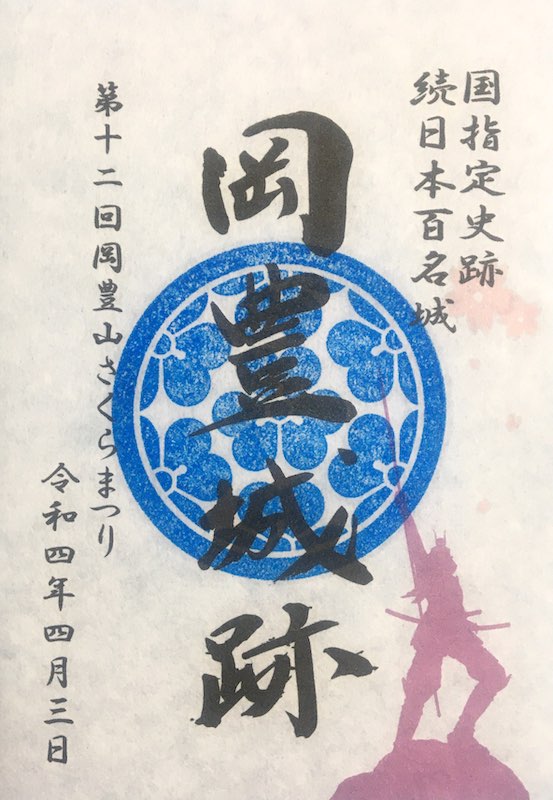 国指定史跡
続日本百名城
岡豊城跡
第十二回岡豊山さくらまつり
令和四年四月三日